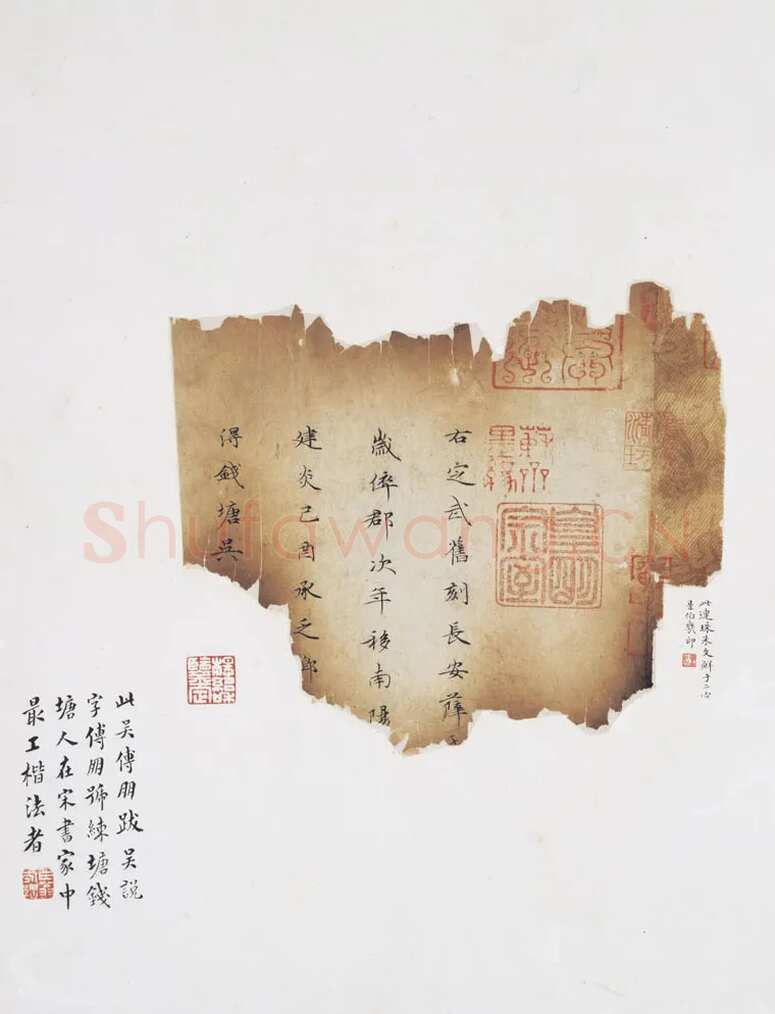 此連珠朱文鮮于二
是伯幾印
右定武舊刻長安薛
歲儕郡次年移南陽
建炎己酉承乏
得錢塘吳
此吳傅朋跋吳說
字傅朋號練塘錢
塘人在宋書家中
最工楷法者
Shufawang.CN